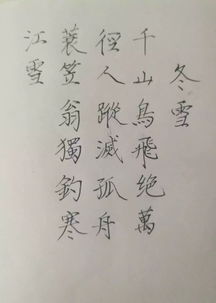 冬雪
千山鳥飛绝萬
徑人蹤滅孤舟
蓑笠翁獨釣寒
江雪